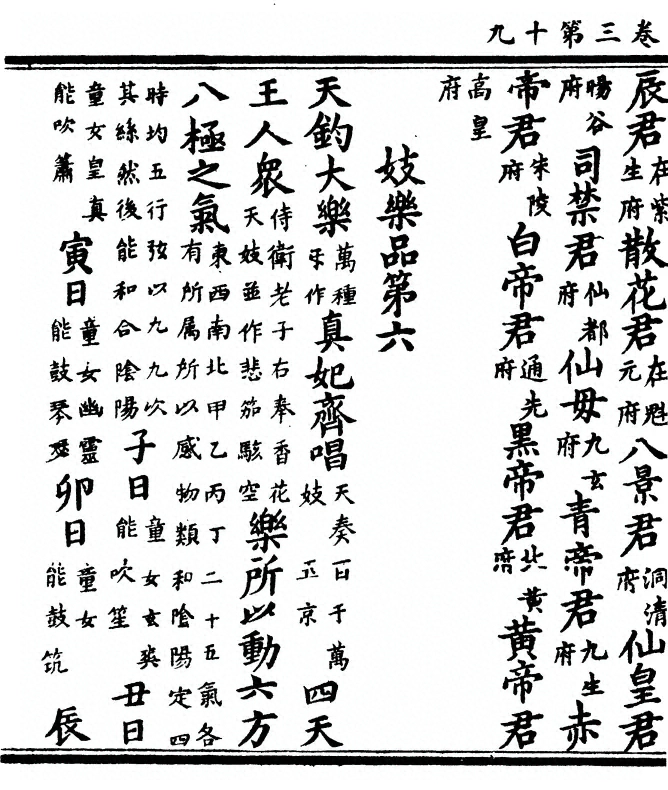 卷三第十九
辰君在紫生府散花君在魁元府八景君洞清府仙皇君
暘谷府司禁君仙都府仙母九玄府青帝君九生府赤
帝君朱陵府白帝君通先府黑帝君北黄府黄帝君
高皇府
妓樂品第六
天鈞大樂萬種㸦作真妃齊唱天奏百千萬妓玉京四天
王人眾侍衛老子右奉香花天妓並作悲笳駭空樂所以動六方
八極之氣東西南北甲乙丙丁二十五氣各有所属所以感物類和陰陽定四
時均五行弦以九九吹其絲然後能和合陰陽子日童女玄英能吹笙丑日
童女皇真能吹簫寅日童女幽靈能鼓琴瑟卯日童女能鼓筑辰